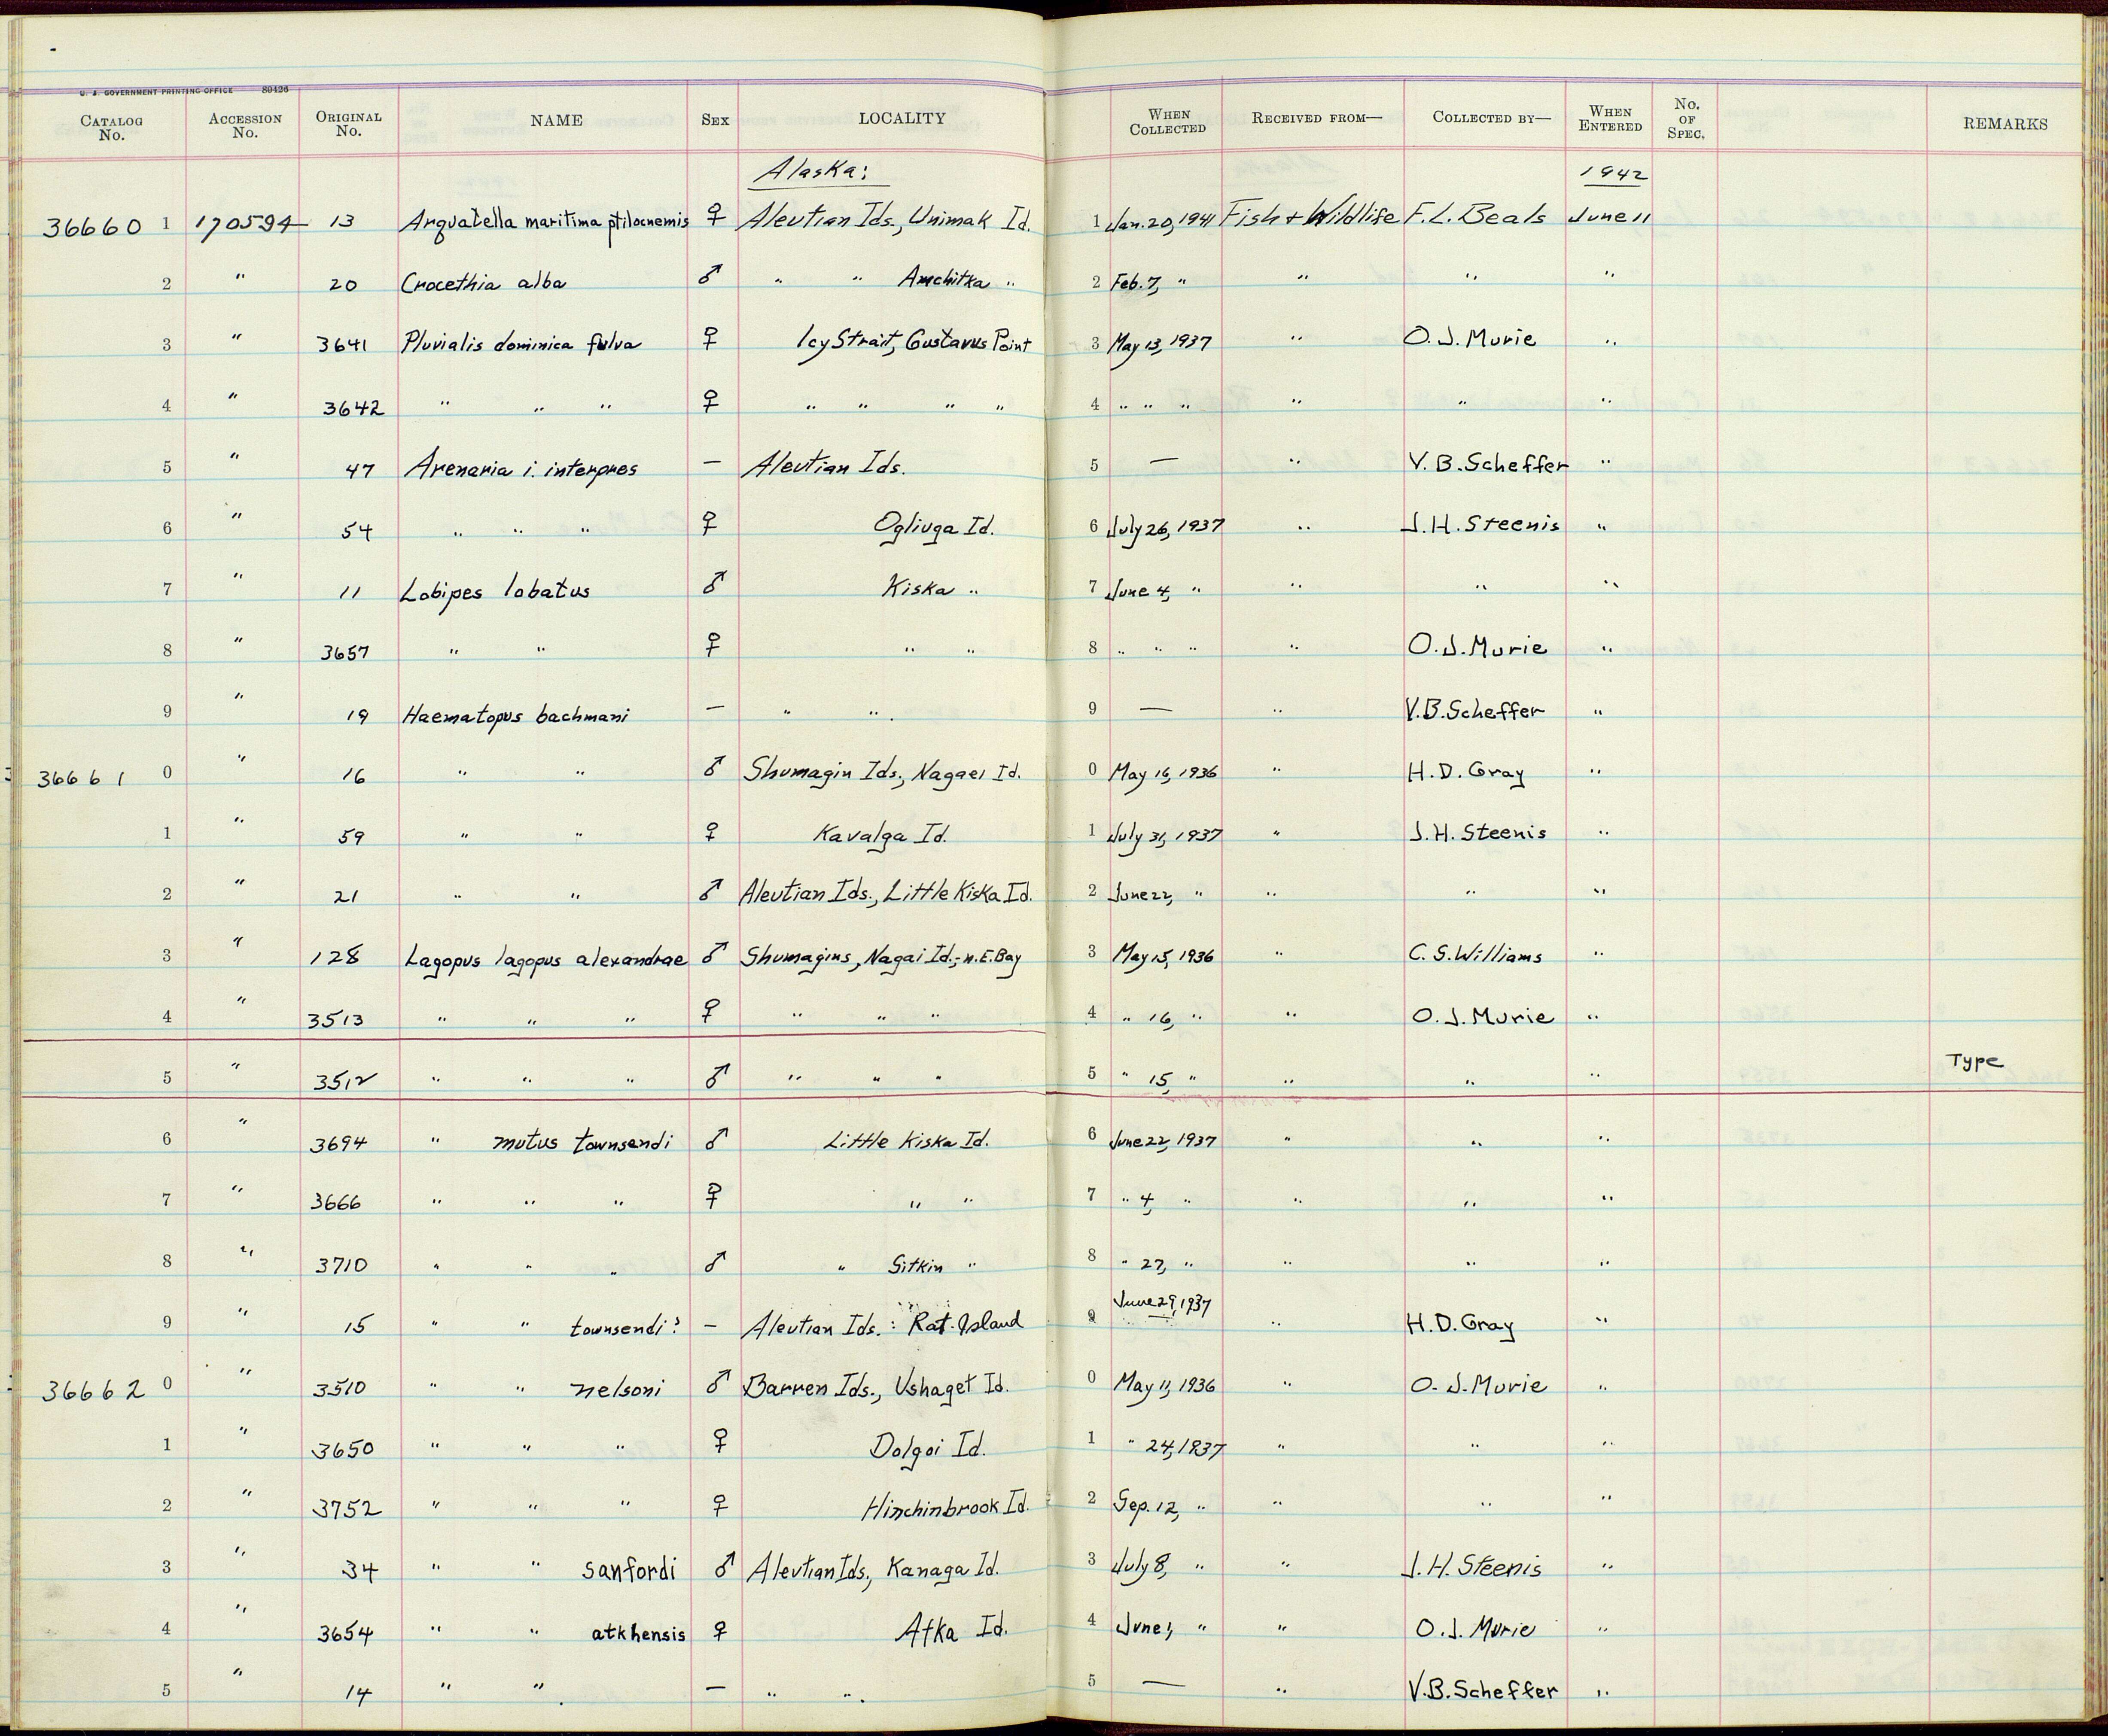 U. S. GOVERNMENT PRINTING OFFICE 89426
CATALOG No. ACCESSION No. ORIGINAL No. NAME SEX LOCALITY WHEN COLLECTED RECEIVED FROM— COLLECTED BY— WHEN ENTERED No. OF SPEC. REMARKS
Alaska: 1942
36660 1 170594 13 Arquatella maritima ptilocnemis ♀ Aleutian Ids., Unimak Id. 1 Jan. 20, 1941 Fish + Wildlife F. L. Beals June 11
2 " 20 Crocethia alba ♂ " " Amchitka " 2 Feb. 7, " " " "
3 " 3641 Pluvialis dominica fulva ♀ Icy Strait, Gustavus Point 3 May 13, 1937 " O. J. Murie "
4 " 3642 " " " ♀ " " " " 4 " " " " " "
5 " 47 Arenaria i. interpres — Aleutian Ids. 5 — " V. B. Scheffer "
6 " 54 " " " ♀ Ogliuga Id. 6 July 26, 1937 " J. H. Steenis "
7 " 11 Lobipes lobatus ♂ Kiska " 7 June 4, " " " "
8 " 3657 " " ♀ " " 8 " " " " O. J. Murie "
9 " 19 Haematopus bachmani — " " . 9 — " V. B. Scheffer "
36661 0 " 16 " " ♂ Shumagin Ids., Nagaei Id. 0 May 16, 1936 " H. D. Gray "
1 " 59 " " ♀ Kavalga Id. 1 July 31, 1937 " J. H. Steenis "
2 " 21 " " ♂ Aleutian Ids., Little Kiska Id. 2 June 22, " " " "
3 " 128 Lagopus lagopus alexandrae ♂ Shumagins, Nagai Id.,-N.E. Bay 3 May 15, 1936 " C. S. Williams "
4 " 3513 " " " ♀ " " " 4 " 16, " " O. J. Murie "
5 " 3512 " " " ♂ " " " 5 " 15, " " " " Type
6 " 3694 " mutus townsendi ♂ Little Kiska Id. 6 June 22, 1937 " " "
7 " 3666 " " " ♀ " " 7 " 4, " " " "
8 " 3710 " " " ♂ " Sitkin " 8 " 27, " " " "
9 " 15 " " townsendi? — Aleutian Ids. : Rat Island 9 June 29, 1937 " H. D. Gray "
36662 0 " 3510 " " nelsoni ♂ Barren Ids., Ushaget Id. 0 May 11, 1936 " O. J. Murie "
1 " 3650 " " " ♀ Dolgoi Id. 1 " 24, 1937 " " "
2 " 3752 " " " ♀ Hinchinbrook Id. 2 Sep. 12, " " " "
3 " 34 " " sanfordi ♂ Aleutian Ids., Kanaga Id. 3 July 8, " " J. H. Steenis "
4 " 3654 " " atkhensis ♀ Atka Id. 4 June 1, " " O. J. Murie "
5 " 14 " " . — " " . 5 — " V. B. Scheffer "